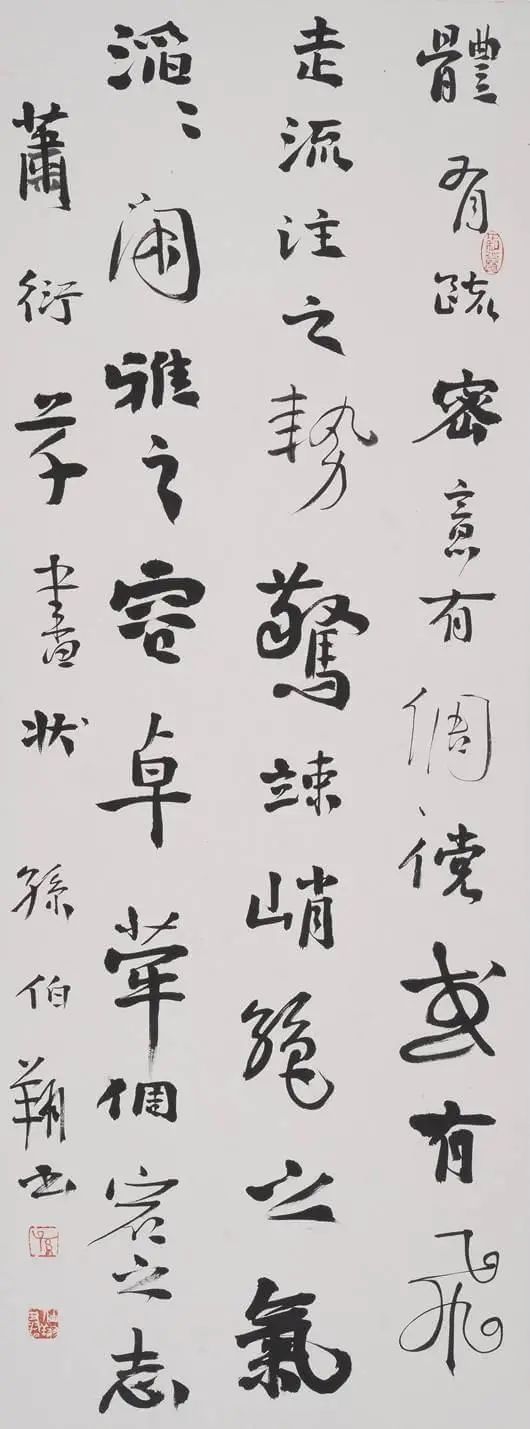 體有疏密意有倜儻或有飛
走流注之勢驚竦峭絶之氣
滔〻閑雅之容卓犖倜宕之志
蕭衍草書狀 孫伯翔书